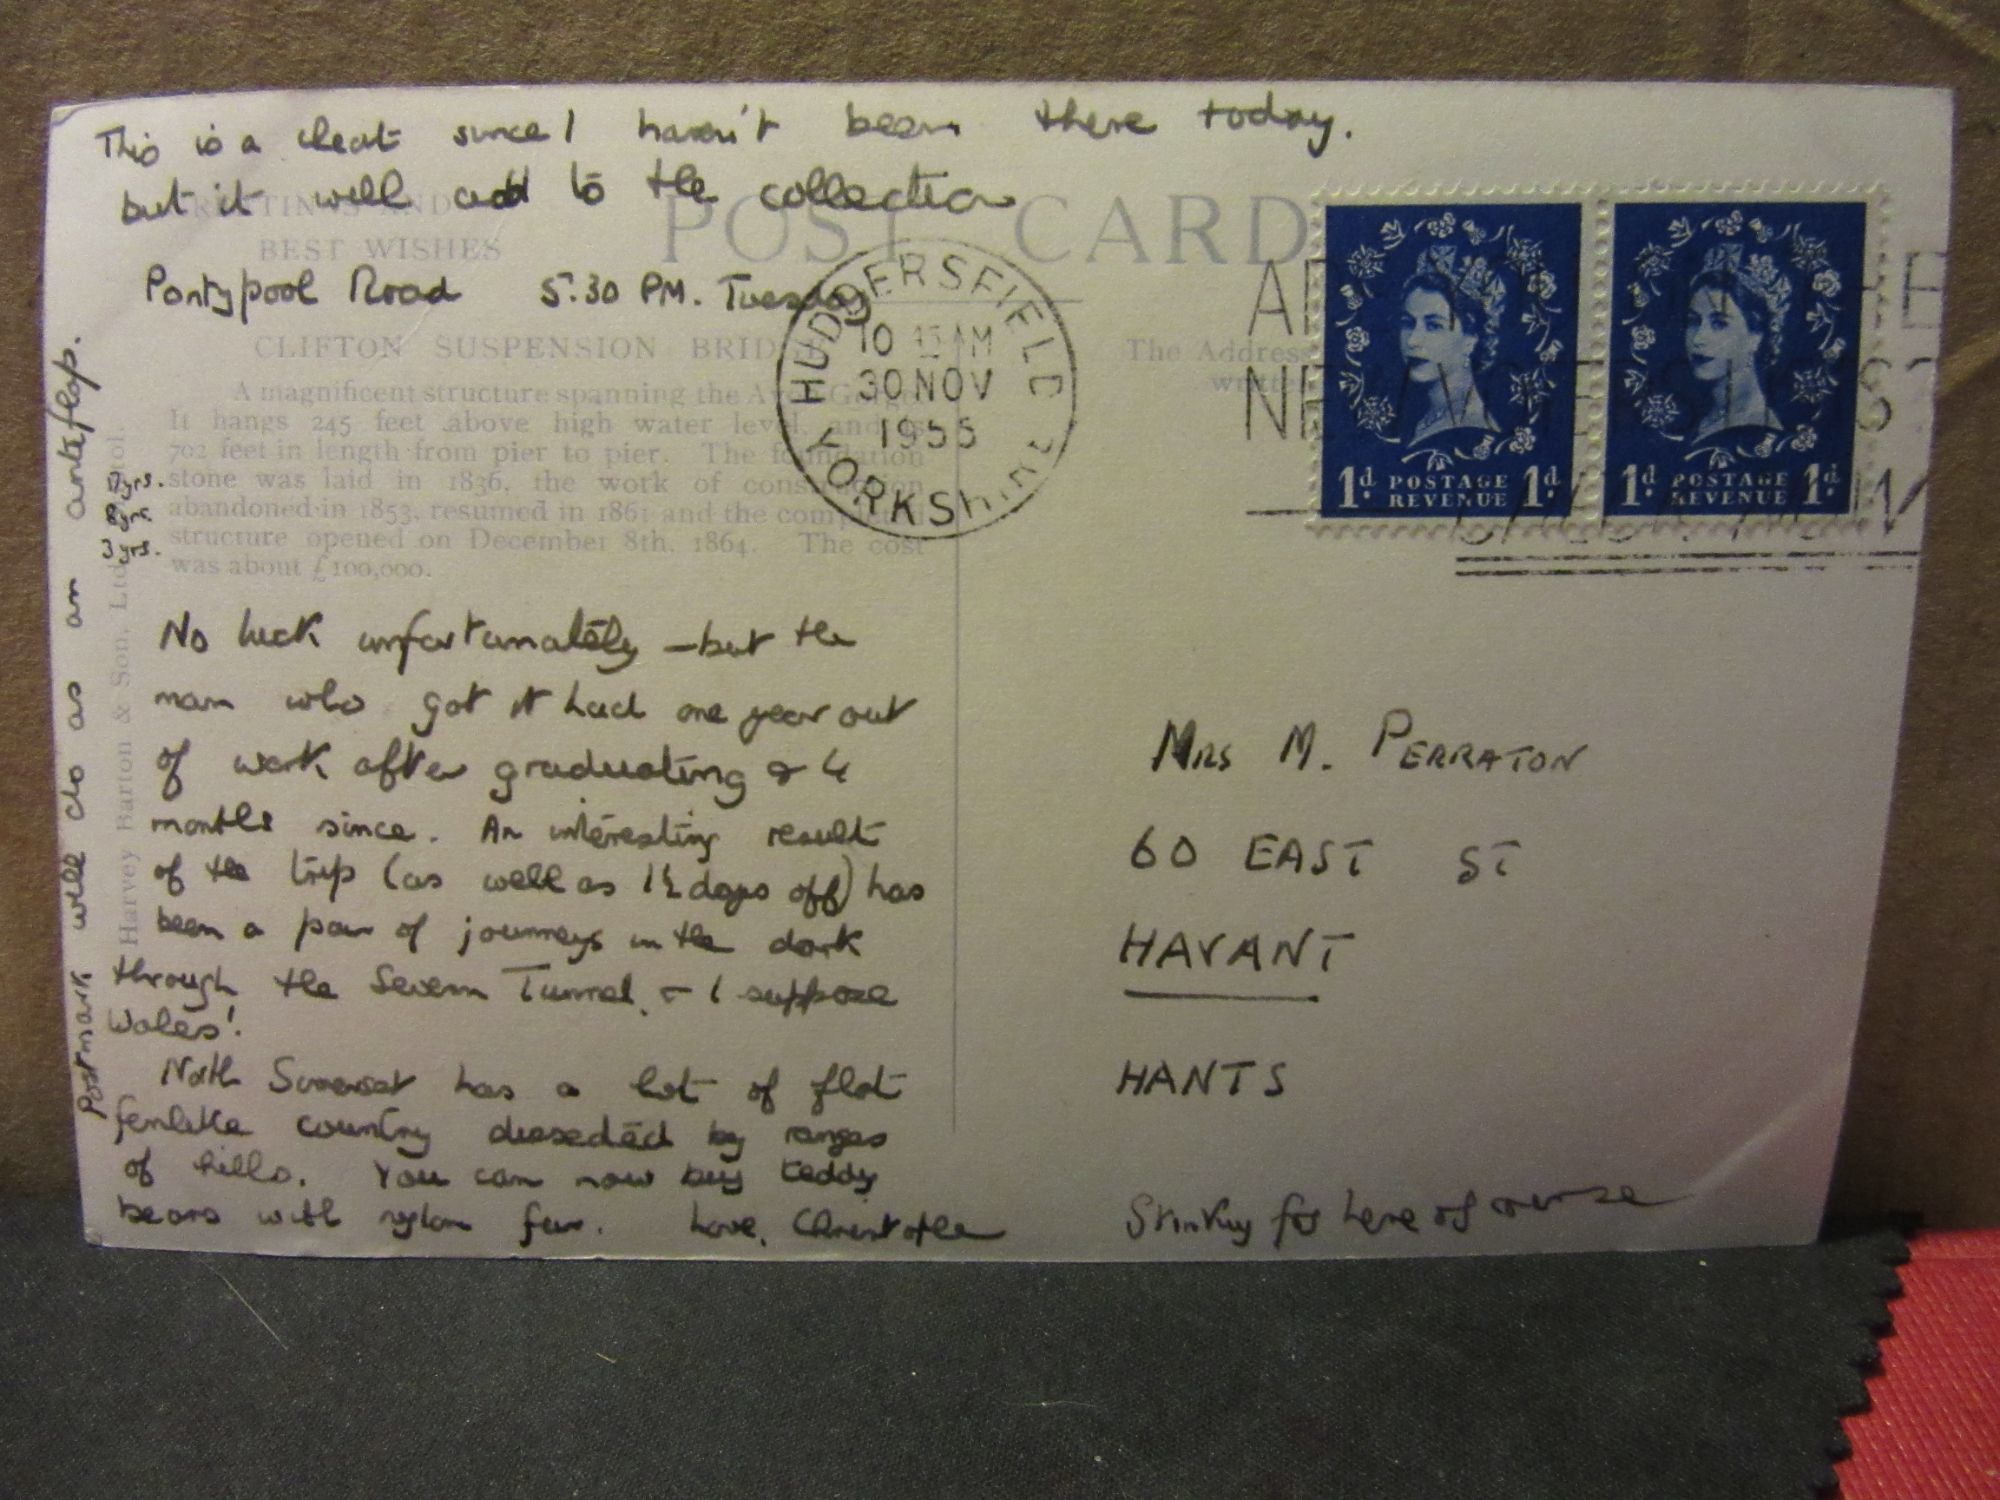 This is a cheat since I haven't been there today.
but it will add to the collection
GREETINGS AND
BEST WISHES
POST CARD
Pontypool Road 5.30 PM. Tuesday
CLIFTON SUSPENSION BRIDGE
A magnificent structure spanning the Avon Gorge.
It hangs 245 feet above high water level, and is
702 feet in length from pier to pier. The foundation
17 yrs. stone was laid in 1836, the work of construction
8 yrs. abandoned in 1853, resumed in 1861 and the completed
3 yrs. structure opened on December 8th, 1864. The cost
was about £100,000.
No luck unfortunately – but the
man who got it had one year out
of work after graduating & 4
months since. An interesting result
of the trip (as well as 1½ days off) has
been a pair of journeys in the dark
through the Severn Tunnel, & I suppose
Wales!
North Somerset has a lot of flat
fenlike country dissected by ranges
of hills. You can now buy teddy
bears with nylon fur. Love,
Postmark will do as an
Harvey Barton & Son, Ltd. Bristol.
HUDDERSFIELD
10 15 AM
30 NOV
1955
YORKSHIRE
The Address
written
1d POSTAGE REVENUE 1d
1d POSTAGE REVENUE 1d
MRS M. PERRATON
60 EAST ST
HAVANT
HANTS
Stinking fog here of course